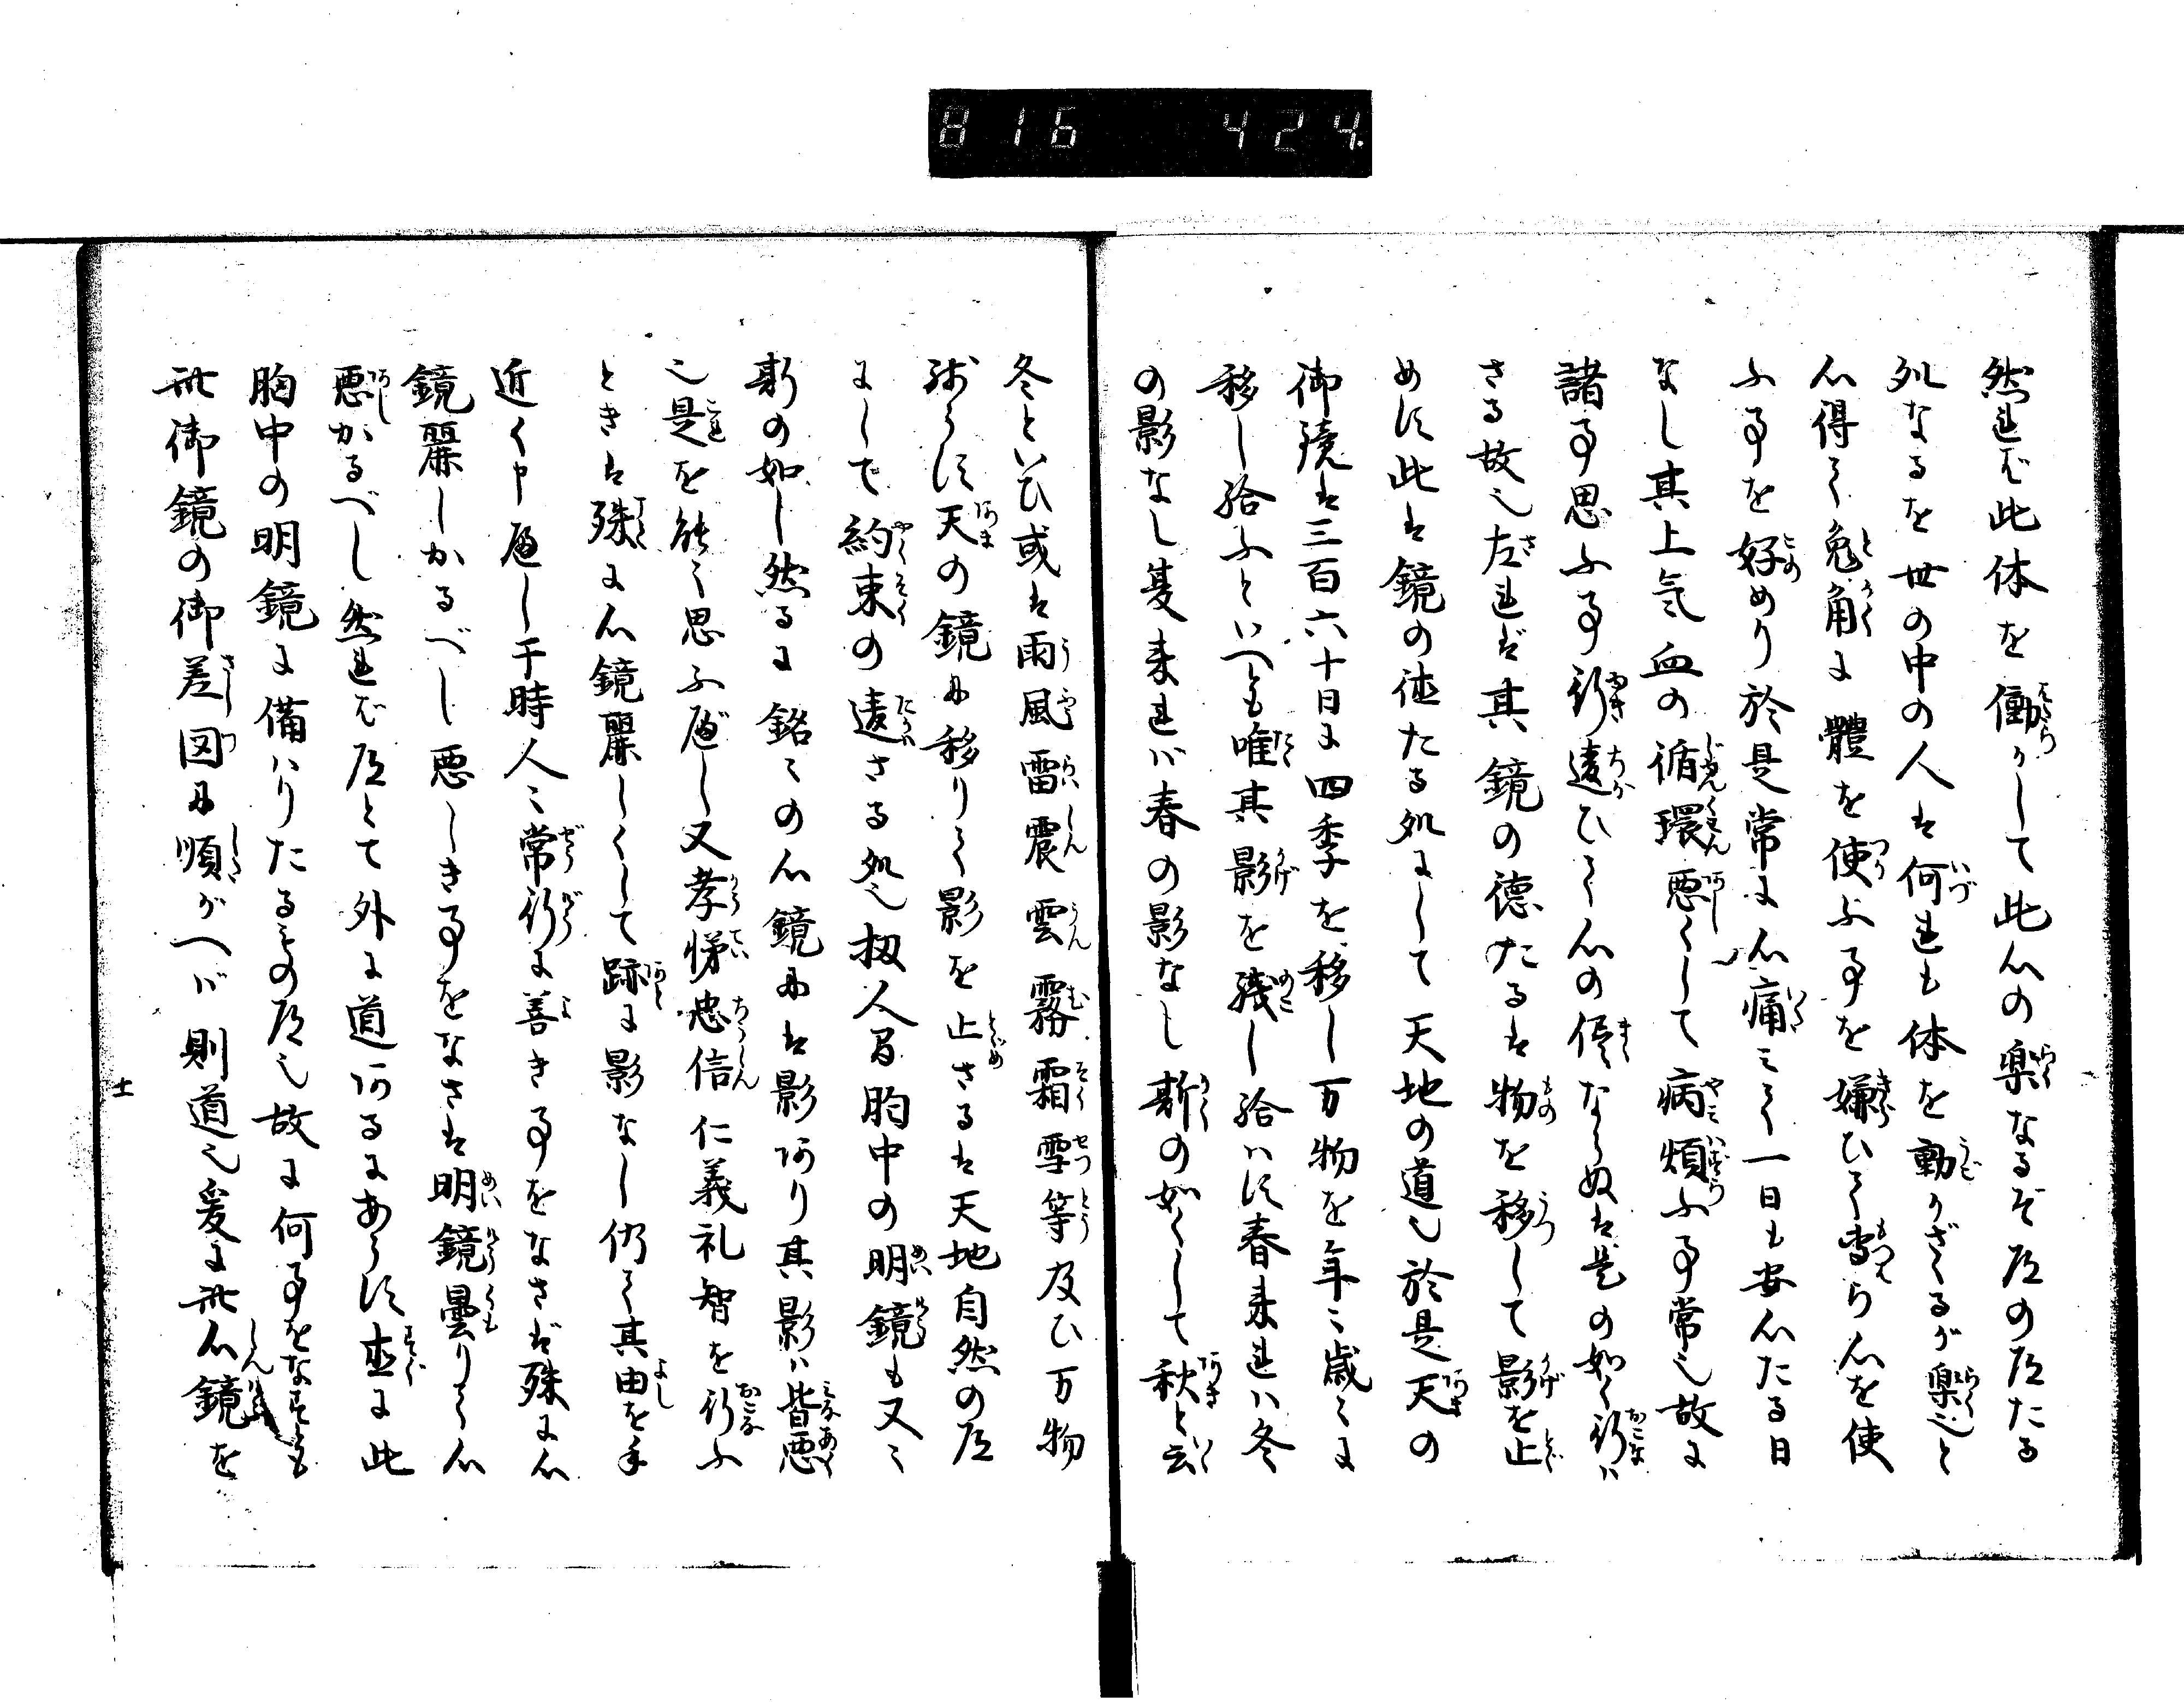 816 424.
然れば此体を働かして此心の楽なるぞ道の道たる
処なるを世の中の人は何れも体を動かざるが楽也と
心得て兎角に體を使ふ事を嫌ひて専ら心を使
ふ事を好めり於是常に心痛みて一日も安心たる日
なし其上気血の循環悪しくして病煩ふ事常也故に
諸事思ふ事行違ひて心の儘ならぬは是の如く行は
さる故也左れば其鏡の徳たるは物を移して影を止
めず此は鏡の徳たる処にして天地の道也於是天の
御鏡は三百六十日に四季を移し万物を年々歳々に
移し給ふといへども唯其影を残し給はず春来れは冬
の影なし夏来れば春の影なし斯の如くして秋と云
冬といひ或は雨風雷震雲霧霜雪等及ひ万物
残らず天の鏡に移りて影を止さるは天地自然の道
にして約束の違さる処也扨人間胸中の明鏡も又々
斯の如し然るに銘々の心鏡には影あり其影は皆悪
也是を能く思ふべし又孝悌忠信仁義礼智を行ふ
ときは殊に心鏡麗しくして跡に影なし仍て其由を手
近く申べし于時人々常行に善き事をなさば殊に心
鏡麗しかるべし悪しき事をなさは明鏡曇りて心
悪しかるべし然れば道とて外に道あるにあらず直に此
胸中の明鏡に備はりたるものの道也故に何事をなすとも
此御鏡の御差図に順がへば則道也爰に此心鏡を
十一